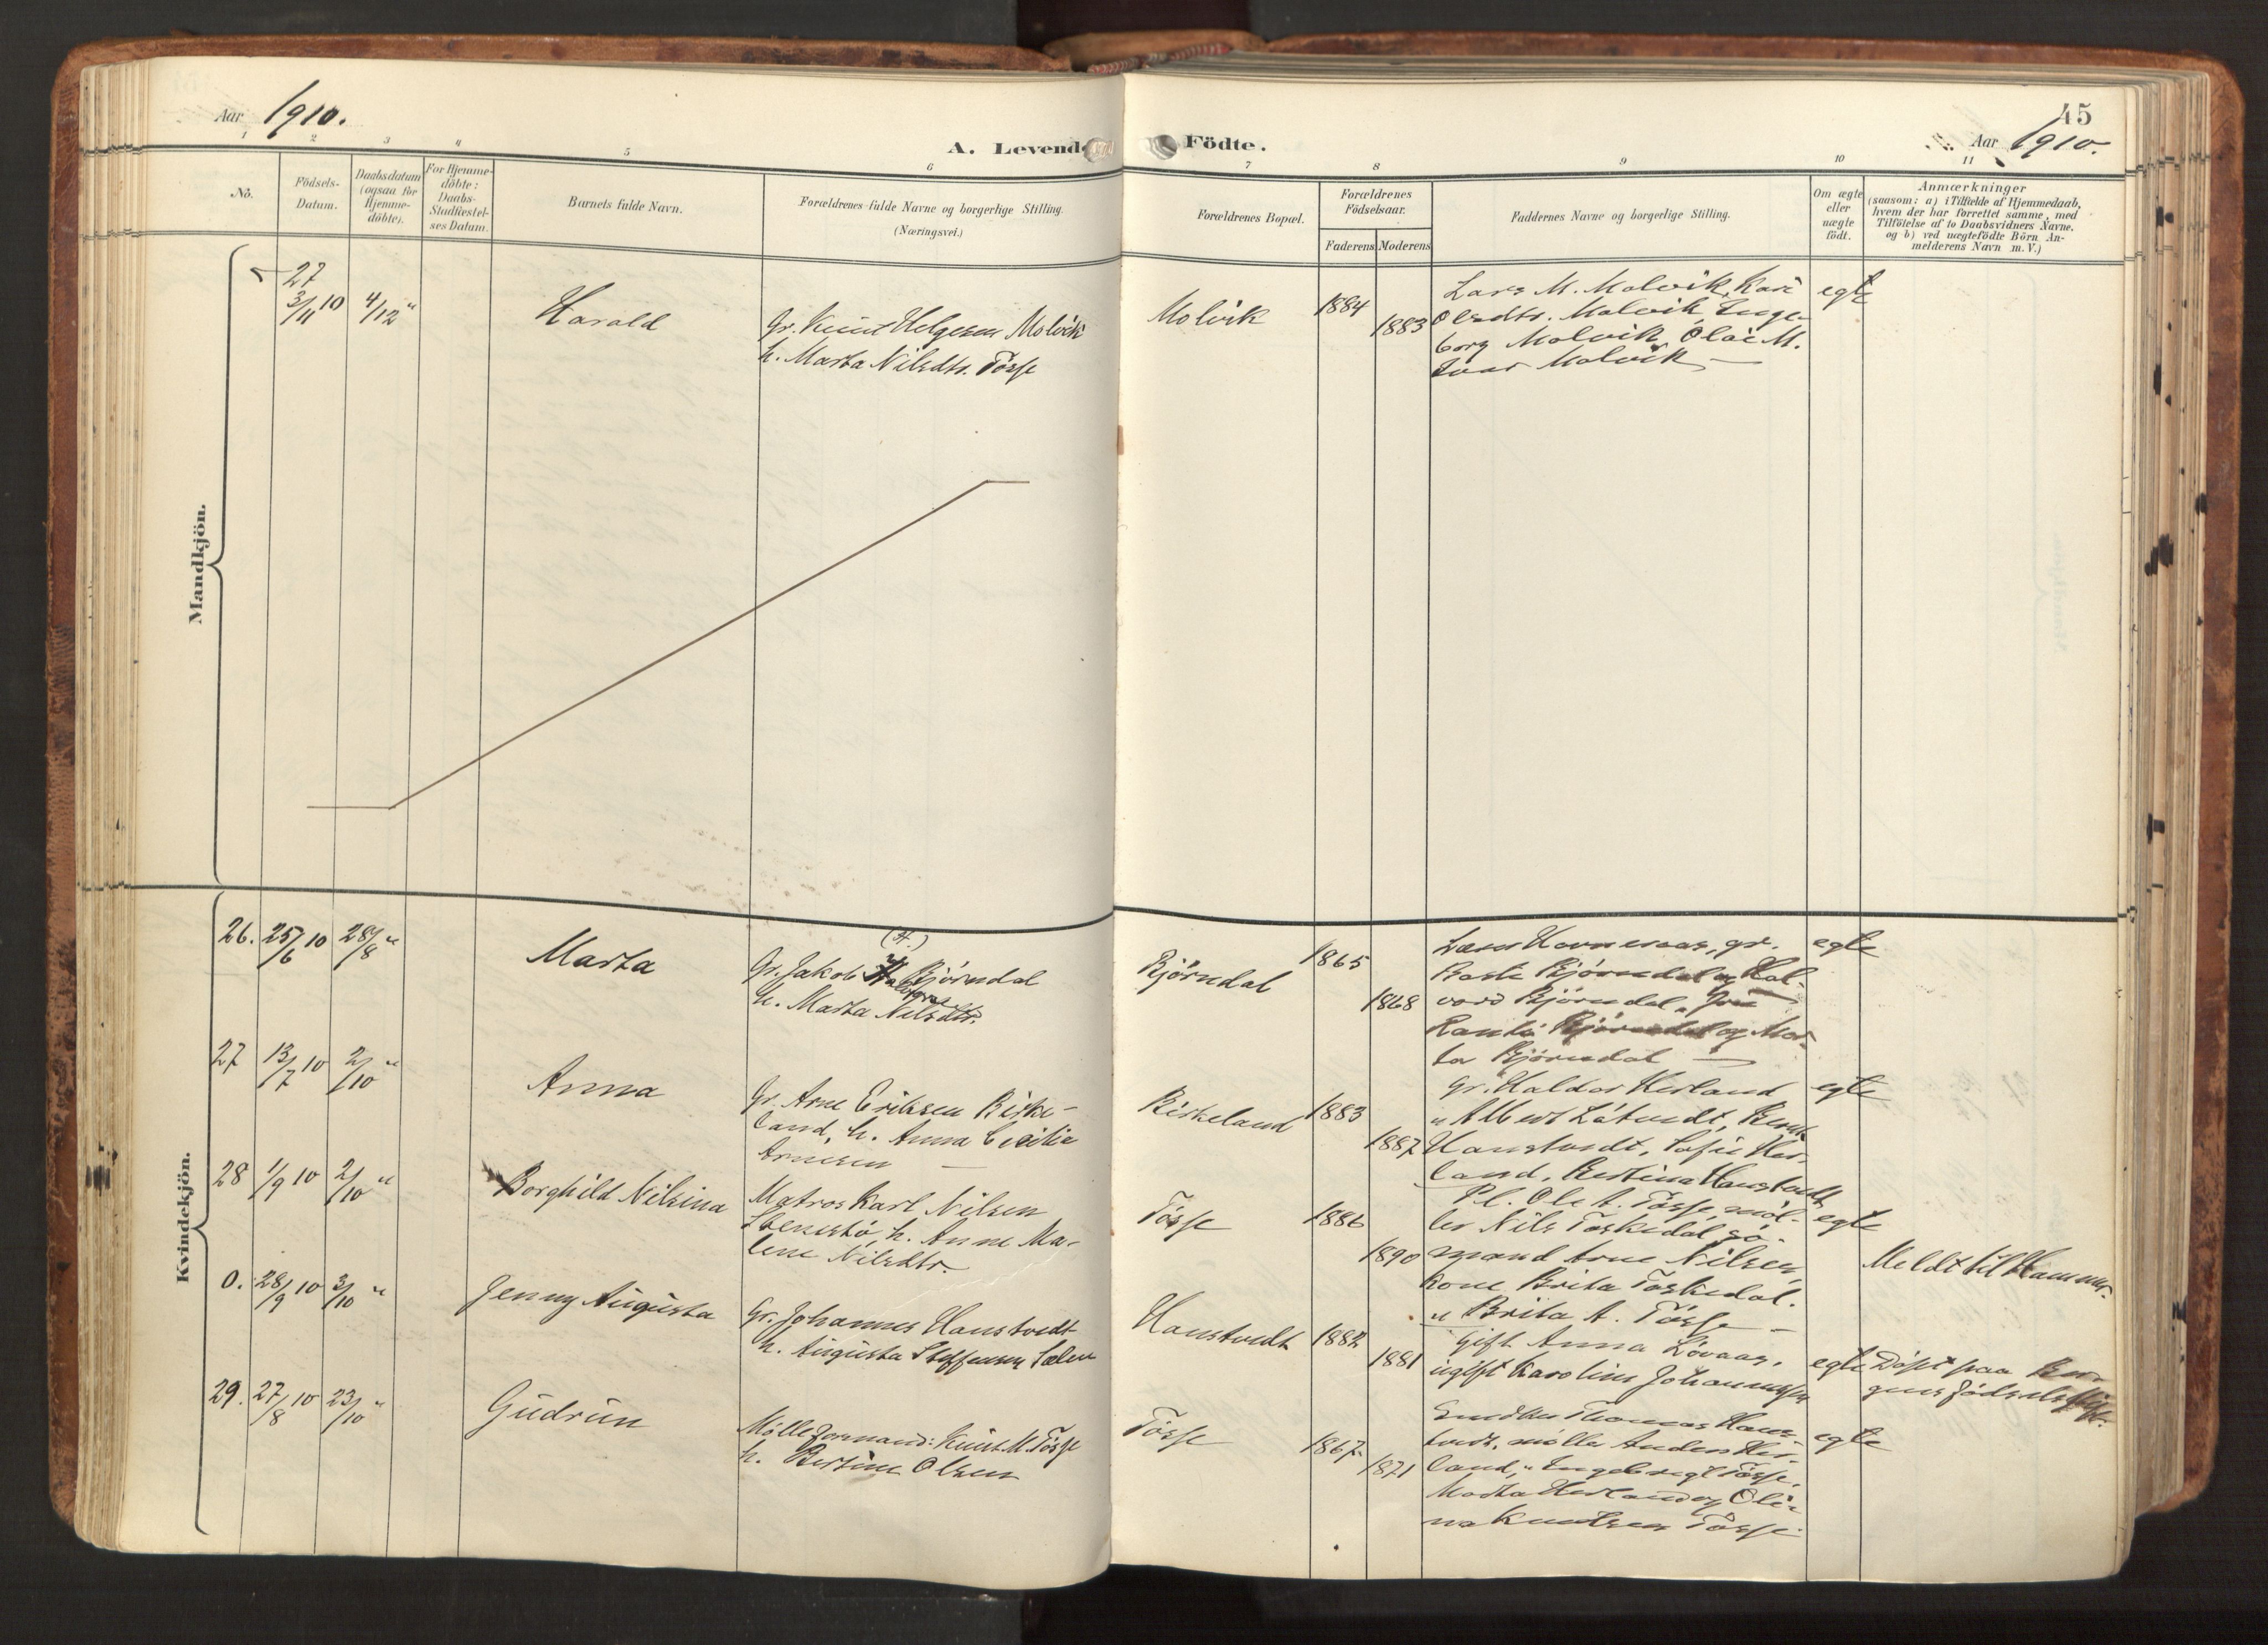 Aar 1910.
A. Levende Födte.
45
Aar 1910.
1 2 3 4 5 6 7 8 9 10 11
No.
Födsels-
Datum.
Daabsdatum
(ogsaa for
Hjemme-
döbte).
For Hjemme-
döbte:
Daabs-
Stadfæstel-
ses Datum.
Barnets fulde Navn.
Forældrenes fulde Navne og borgerlige Stilling.
(Næringsvei.)
Forældrenes Bopæl.
Forældrenes
Födselsaar.
Faderens Moderens
Faddernes Navne og borgerlige Stilling.
Om ægte
eller
uægte
födt.
Anmærkninger
(saasom: a) i Tilfælde af Hjemmedaab,
hvem der har forrettet samme, med
Tilföielse af to Daabsvidners Navne.
og b) ved uægtefödte Börn An-
melderens Navn m. V.)
Mandkjön.
27
3/11 10 4/12 "
Harald
Gr. Knut Helgesen Molvik
h. Marta Nilsdtr. Tösse
Molvik
1884
1883
Lars M. Molvik, Kari
Olsdtr. Molvik, Inge-
borg Molvik, Olai M.
Ivar Molvik
egte
Kvindekjön.
26. 25/6 10 28/8 "
Marta
(H.)
Gr. Jakob Björndal
h. Marta Nilsdtr.
Björndal
1865
1868
Havneraas, gr.
Björndal og Hal-
vard Björndal,
Björndal og Mar-
ta Björndal
egte
27 13/7 10 2/10 "
Anna
Gr. Arne Eriksen Birke-
land, h. Anna Cecilie
Arnesen
Birkeland
1883
1887
Gr. Haldor Herland
" Albert Låtvedt,
Hanstvedt, Sofie Her-
land, Bertina Hanstvedt
egte
28 1/9 10 2/10 "
Borghild Nilsina
Matros Karl Nilsen
Stenestö, h. Anne Ma-
lene Nilsdtr.
Tösse
1886
1890
Pl. Ole A. Tösse, möl-
ler Nils Toskedal, sö-
mand Arne Nilsen,
kone Brita Toskedal.
" Brita A. Tösse
egte
Meldt til Hammer.
0. 28/9 10 3/10 "
Jenny Augusta
Gr. Johannes Hanstvedt
h. Augusta Steffensen Sælen
Hanstvedt
1882
1881
Gift Anna Lövaas,
ugift Karoline Johannessen
egte
Döpt paa Ber-
gens födselsstift.
29. 27/8 10 23/10 "
Gudrun
Mölleformand: Knut M. Tösse
h. Bertine Olsen
Tösse
1867
1871
Smedm Thomas Hans-
tvedt, möller Anders Her-
land, " Ingebrigt Tösse,
Marta Herland og Oli-
na Knutsen Tösse.
egte